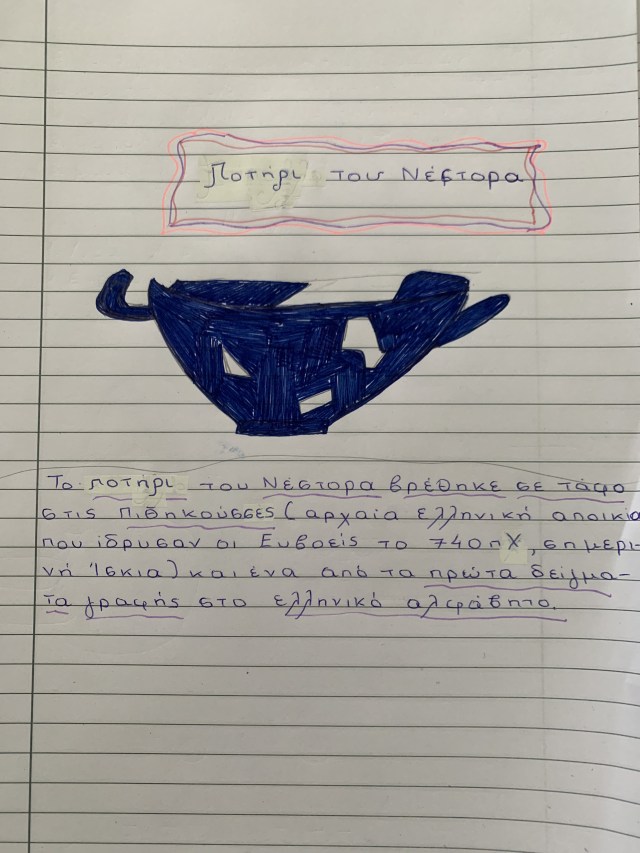 Ποτήρι του Νέστορα
Το ποτήρι του Νέστορα βρέθηκε σε τάφο
στις Πιθηκούσσες (αρχαία ελληνική αποικία
που ίδρυσαν οι Ευβοείς το 740 πΧ, σημερι-
νή Ίσκια) και ένα από τα πρώτα δείγμα-
τα γραφής στο ελληνικό αλφάβητο.